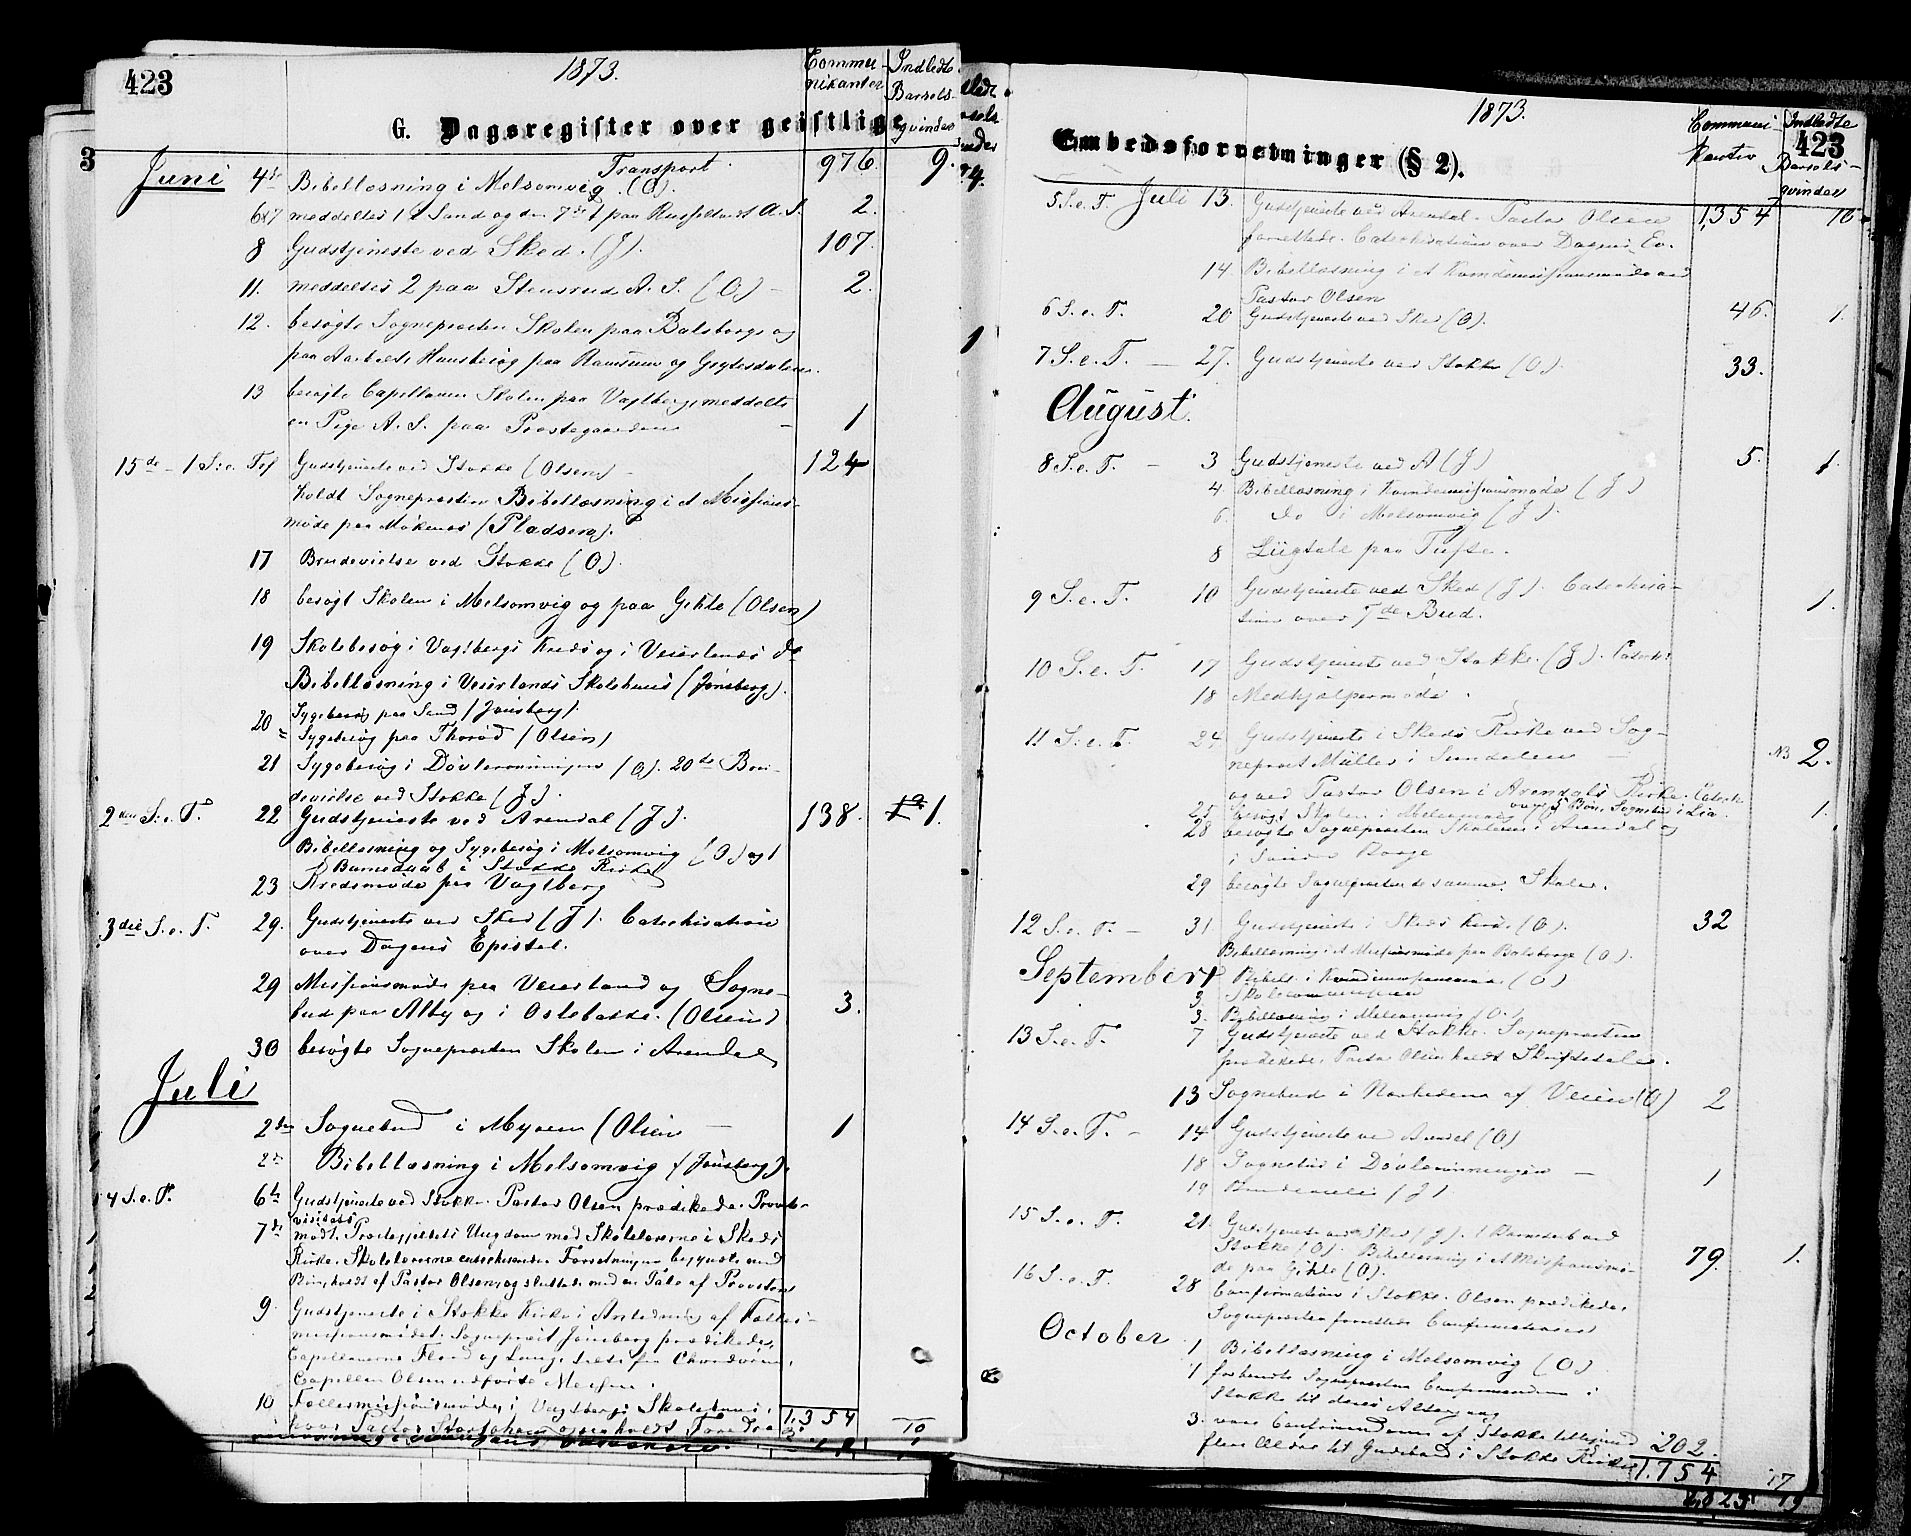 423
1873.
Commu-
nikanter
Indledte
Barsels-
qvinder
G. Dagsregister over geistlige
3
Juni
Transport
976.
9.
4de Bibellæsning i Melsomvig (O).
6&7 meddeltes 1 paa Sand og den 7de 1 paa A. S. 2.
8 Gudstjeneste ved Skee. (J). 107.
11. meddeltes 2 paa Stensrud A. S. (O) - 2.
12. besøgte Sognepræsten Skolen paa Bolsberge og
paa Husbesøg paa Ramsum og
13 besøgte Capellanen Skolen paa Vagtberg, meddelte
en Pige A. S. paa Præstegaarden - 1
15de - 1 S. e. Tref Gudstjeneste ved Stokke (Olsen) - 124
holdt Sognepræsten Bibellæsning i et Missions-
møde paa Mökenæs (Pladsen).
17 Brudevielse ved Stokke (O).
18 besøgt Skolen i Melsomvig og paa Gihle (Olsen)
19 Skolebesøg i Vagtbergs Kreds og i Veierlands do
Bibellæsning i Veierlands Skolehuus (Jonsberg).
20 Sygebesøg paa Sand (Jonsberg).
= Sygebesøg paa Thorød (Olsen)
21 Sygebesøg i (O). 20de Bru-
devielse ved Stokke (J).
2den S. e. T. 22 Gudstjeneste ved Arendal (J). 138. 1.
Bibellæsning og Sygebesøg i Melsomvig (O) og 1
Barnedaab i Stokke Kirke
23 Kredsmøde paa Vagtberg
3die S. e. T. 29. Gudstjeneste ved Skee (J). Catechisation
over Dagens Epistel.
29 Missionsmøde paa Veierland og Sogne-
bud paa Alby og i Ostebakke. (Olsen) 3.
30 besøgte Sognepræsten Skolen i Arendal
Juli
2den Sognebud i Myren (Olsen - 1
2de Bibellæsning i Melsomvig (Jonsberg).
4 S. e. T. 6te Gudstjeneste ved Stokke. Pastor Olsen prædikede. Provste-
visitats
7de mødt Præstegjeldets Ungdom med Skolelærerne i Skees
Kirke. Skolelærerne catechiserede. Forretningen begyndte med
Bøn, holdt af Pastor Olsen, og sluttede med en Tale af Provsten
9. Gudstjeneste i Stokke Kirke i Anledning af Fælles-
missionsmødet. Sognepræst Jonsberg prædikede,
Capellanerne Flood og Lange talte fra Chordøren,
Capellan Olsen udførte Messen.
10 Fællesmissionsmøde i Vagtbergs Skolehuus,
hvor Pastor holdt Foredrag
1,354
10
1873.
Communi-
kanter
Indledte
423
Barsels-
qvinder
Embedsforretninger (§ 2).
5 S. e. T. Juli 13. Gudstjeneste ved Arendal. Pastor Olsen 1,354 10
forrettede. Catechisation over Dagens Ev.
14 Bibellæsning i et Kvindemissionsmøde ved
Pastor Olsen
6 S. e. T. 20 Gudstjeneste ved Skee (O). 46. 1.
7 S. e. T. - 27. Gudstjeneste ved Stokke (O). 33.
August.
8 S. e. T. - 3 Gudstjeneste ved A (J) 5. 1.
4. Bibellæsning i Kvindemissionsmøde (J)
6 do i Melsomvig (J).
8 Liigtale paa Tufte.
9 S. e. T. 10 Gudstjeneste ved Skee (J). Catechisa-
tion over 7de Bud. 1.
10 S. e. T. 17 Gudstjeneste ved Stokke. (J).
18 Medhjælpermøde.
11 S. e. T. 24. Gudstjeneste i Skees Kirke ved Sog-
nepræst Müller i Sandalen - NB 2.
og ved Pastor Olsen i Arendals Kirke.
over 5 Bøn. Sognebud i Lia.
25. besøgt Skolen i Melsomvig 1.
28 besøgte Sognepræsten Skolerne i Arendal og
i Søndre Borge
29 besøgte Sognepræsten de samme Skoler.
12 S. e. T. - 31 Gudstjeneste i Skees Kirke (O). 32
Bibellæsning i et Missionsmøde paa Bolsberge (O).
September 1 Bibell. i Kvindemissionen (O)
3. Skolecommission
3. Bibellæsning i Melsomvig (O.)
13 S. e. T. 7 Gudstjeneste ved Stokke. Sognepræsten
prædikede. Pastor Olsen holdt Skriftetale.
13 Sognebud i af Veien (O) 2
14 S. e. T. - 14 Gudstjeneste ved Arendal (O)
18 Sognebud i - 1
19 Brudevielse (J).
15 S. e. T. 21. Gudstjeneste ved Skee (J). 1 Barnedaab ved
Stokke (O). Bibellæsning i et Missionsmø- 79. 1.
de paa Gihle (O).
16 S. e. T. 28 Confirmation i Stokke. Olsen prædikede.
Sognepræsten forrettede Confirmationen
October 1 Bibellæsning i Melsomvig (O).
1 forberedte Sognepræsten Confirmanderne i
Stokke til deres Altergang
3. vare Confirmanderne af Stokke tilligemed
flere Ældre til Gudsbord i Stokke Kirke 202.
1,754
17